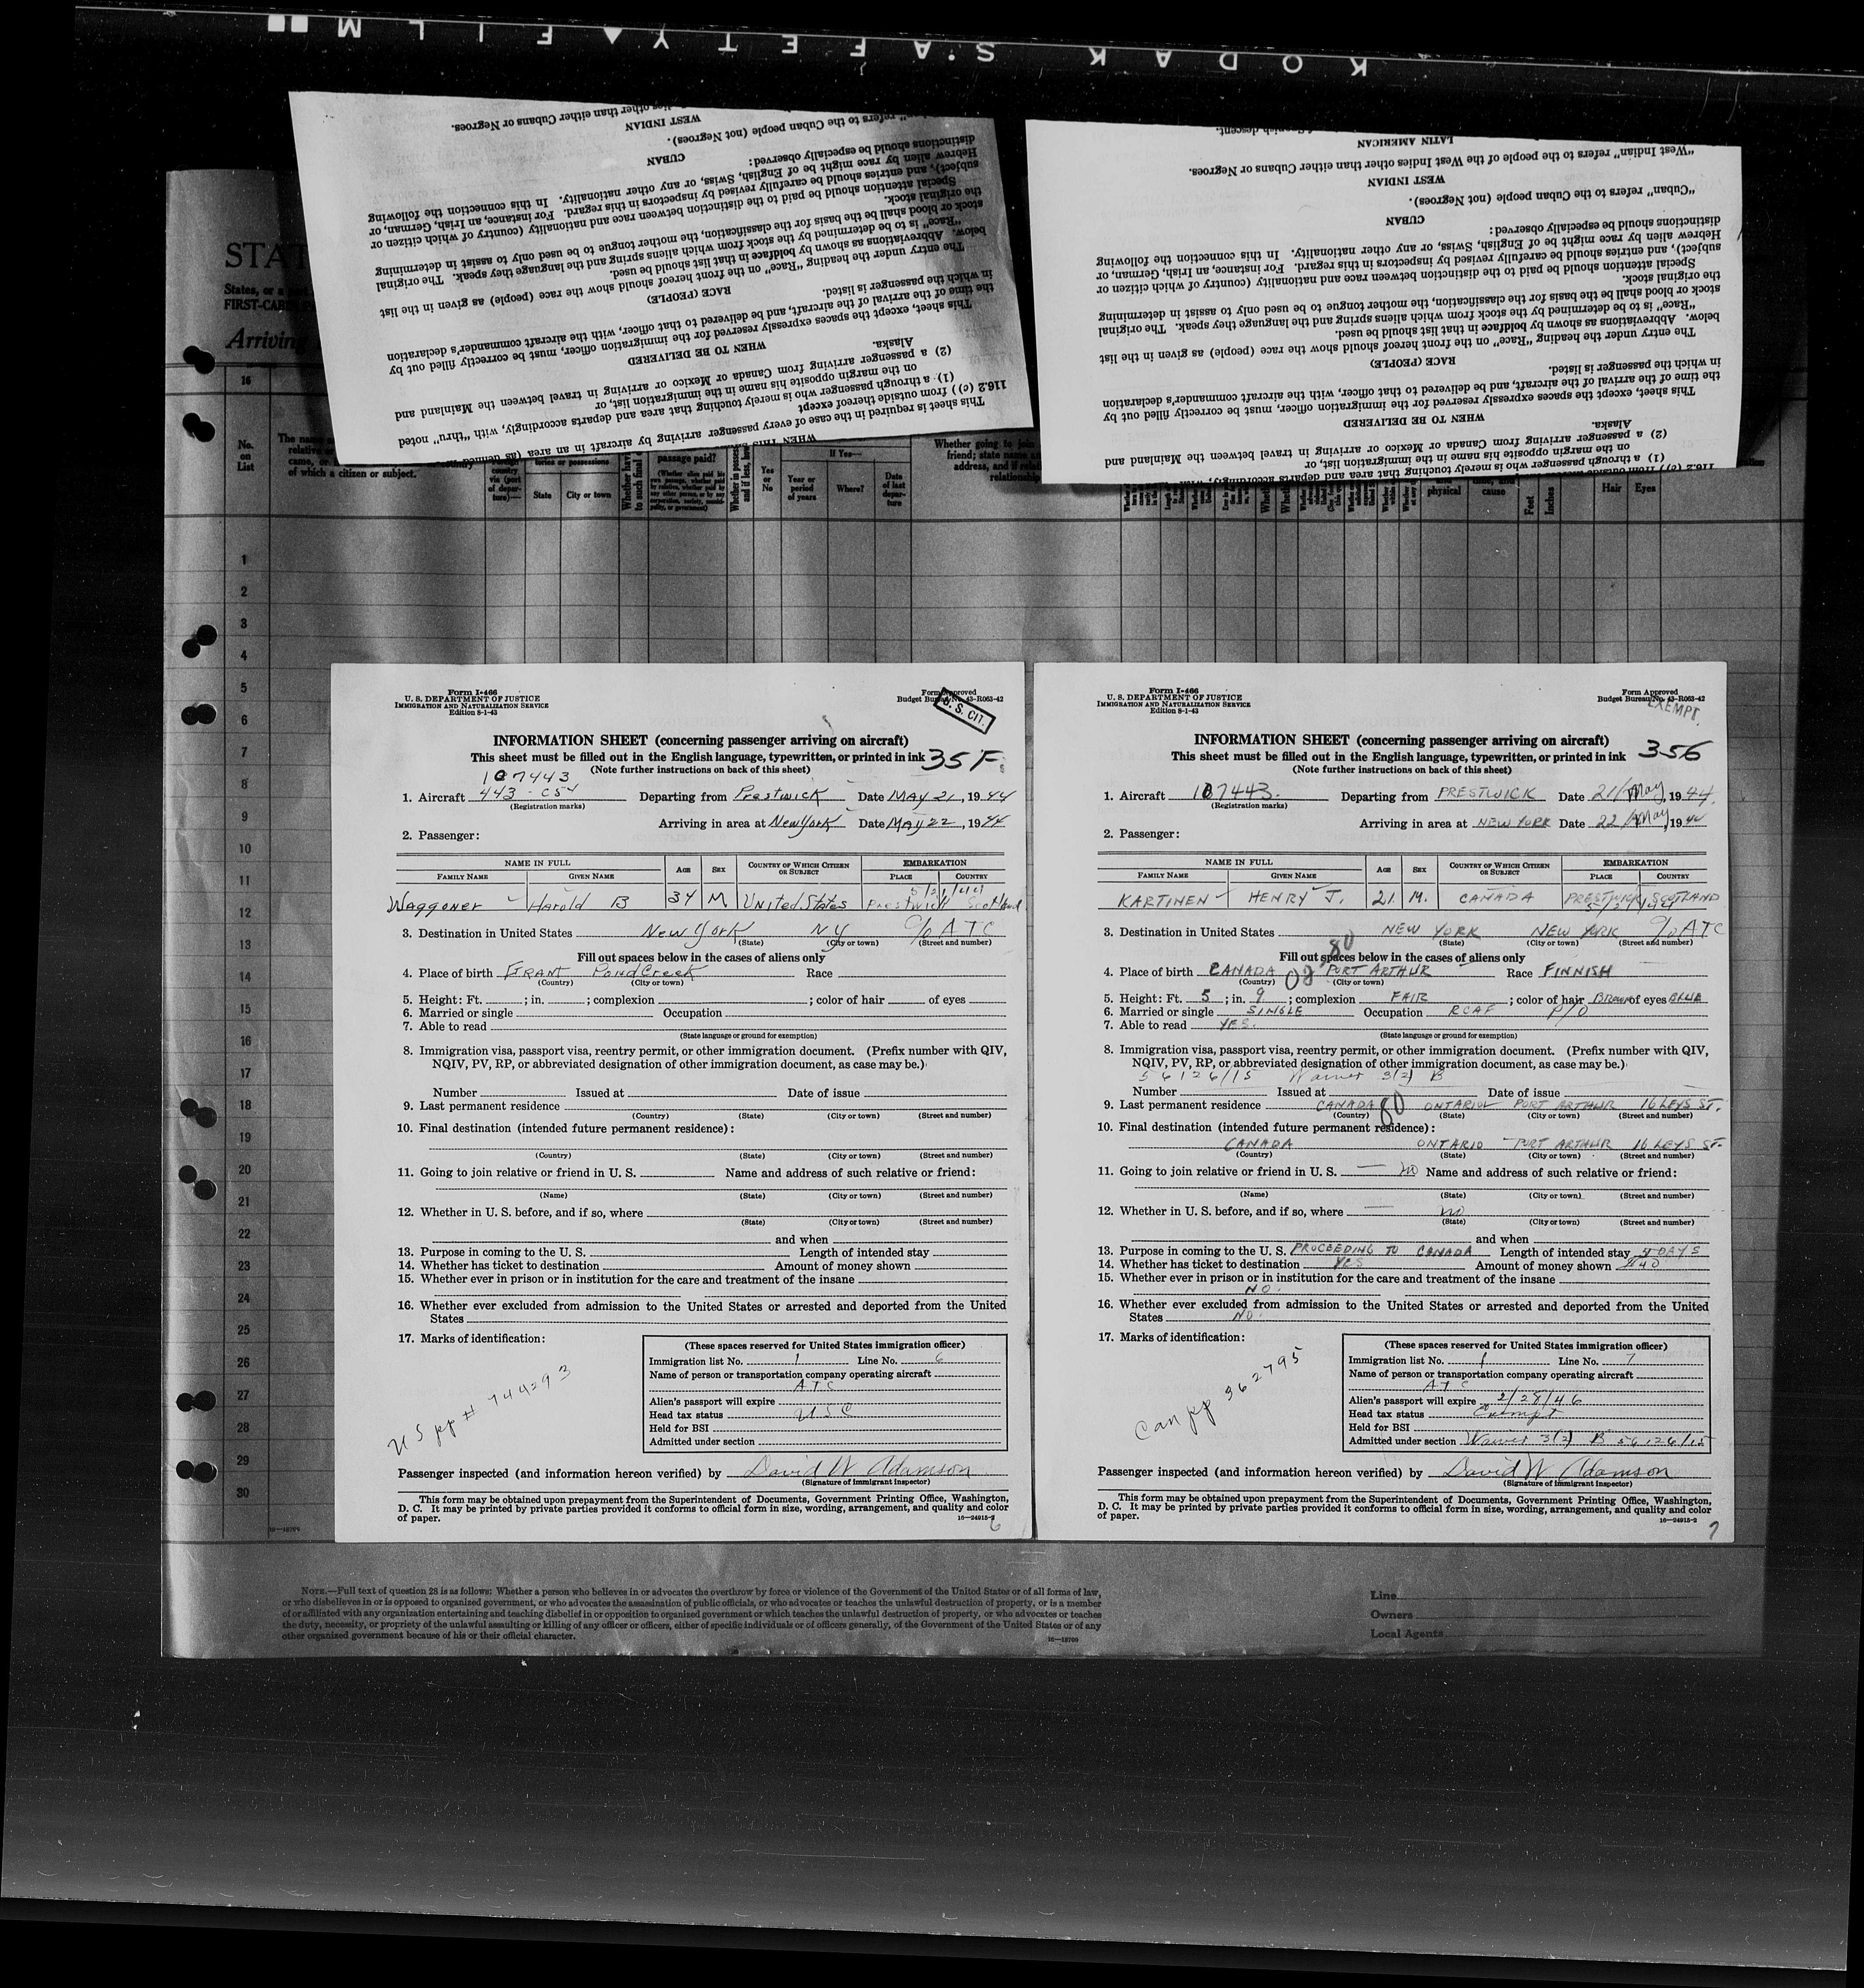 KODAK SAFETY FILM
other than either Cubans or Negroes.
WEST INDIAN
refers to the Cuban people (not Negroes).
CUBAN
distinctions should be especially observed:
Hebrew alien by race might be of English, Swiss, or any other nationality. In this connection the following
subject), and entries should be carefully revised by inspectors in this regard. For instance, an Irish, German, or
Special attention should be paid to the distinction between race and nationality (country of which citizen or
the original stock.
stock or blood shall be the basis for the classification, the mother tongue to be used only to assist in determining
"Race" is to be determined by the stock from which aliens spring and the language they speak. The original
below. Abbreviations as shown by boldface in that list should be used.
The entry under the heading "Race" on the front hereof should show the race (people) as given in the list
RACE (PEOPLE)
in which the passenger is listed.
the time of the arrival of the aircraft, and be delivered to that officer, with the aircraft commander's declaration
This sheet, except the spaces expressly reserved for the immigration officer, must be correctly filled out by
WHEN TO BE DELIVERED
Alaska.
(2) a passenger arriving from Canada or Mexico or arriving in travel between the Mainland and
on the margin opposite his name in the immigration list, or
(1) a through passenger who is merely touching that area and departs accordingly, with "thru" noted
116.2 (c)) from outside thereof except
This sheet is required in the case of every passenger arriving by aircraft in an area (as defined
WHEN THIS
LATIN AMERICAN
"West Indian" refers to the people of the West Indies other than either Cubans or Negroes.
WEST INDIAN
"Cuban" refers to the Cuban people (not Negroes).
CUBAN
distinctions should be especially observed:
Hebrew alien by race might be of English, Swiss, or any other nationality. In this connection the following
subject), and entries should be carefully revised by inspectors in this regard. For instance, an Irish, German, or
Special attention should be paid to the distinction between race and nationality (country of which citizen or
the original stock.
stock or blood shall be the basis for the classification, the mother tongue to be used only to assist in determining
"Race" is to be determined by the stock from which aliens spring and the language they speak. The original
below. Abbreviations as shown by boldface in that list should be used.
The entry under the heading "Race" on the front hereof should show the race (people) as given in the list
RACE (PEOPLE)
in which the passenger is listed.
the time of the arrival of the aircraft, and be delivered to that officer, with the aircraft commander's declaration
This sheet, except the spaces expressly reserved for the immigration officer, must be correctly filled out by
WHEN TO BE DELIVERED
Alaska.
(2) a passenger arriving from Canada or Mexico or arriving in travel between the Mainland and
on the margin opposite his name in the immigration list, or
(1) a through passenger who is merely touching that area and departs accordingly,
STAT
States, or a
FIRST-CAB
Arriving
16
No. on List
The name
of which a citizen or subject.
State
City or town
passage paid?
Yes or No
If Yes—
Year or period of years
Where?
Date of last departure
Whether going to join
physical
cause
Feet
Inches
Hair
Eyes
1
2
3
4
5
6
7
8
9
10
11
12
13
14
15
16
17
18
19
20
21
22
23
24
25
26
27
28
29
30
Form I-466
U. S. DEPARTMENT OF JUSTICE
IMMIGRATION AND NATURALIZATION SERVICE
Edition 8-1-43
Form Approved
Budget Bureau No. 43-R063-42
U. S. CIT.
INFORMATION SHEET (concerning passenger arriving on aircraft)
This sheet must be filled out in the English language, typewritten, or printed in ink 35F
(Note further instructions on back of this sheet)
107443
1. Aircraft 443 - C54 Departing from Prestwick Date MAY 21, 1944
(Registration marks)
Arriving in area at New York Date MAY 22, 1944
2. Passenger:
NAME IN FULL AGE SEX COUNTRY OF WHICH CITIZEN OR SUBJECT EMBARKATION
FAMILY NAME GIVEN NAME PLACE COUNTRY
5/21/44
Waggoner Harold B 34 M United States Prestwick Scotland
3. Destination in United States New York NY % ATC
(State) (City or town) (Street and number)
Fill out spaces below in the cases of aliens only
4. Place of birth GRANT Pond Creek Race
(Country) (City or town)
5. Height: Ft. ; in. ; complexion ; color of hair of eyes
6. Married or single Occupation
7. Able to read
(State language or ground for exemption)
8. Immigration visa, passport visa, reentry permit, or other immigration document. (Prefix number with QIV,
NQIV, PV, RP, or abbreviated designation of other immigration document, as case may be.)
Number Issued at Date of issue
9. Last permanent residence
(Country) (State) (City or town) (Street and number)
10. Final destination (intended future permanent residence):
(Country) (State) (City or town) (Street and number)
11. Going to join relative or friend in U. S. Name and address of such relative or friend:
(Name) (State) (City or town) (Street and number)
12. Whether in U. S. before, and if so, where
(State) (City or town) (Street and number)
and when
13. Purpose in coming to the U. S. Length of intended stay
14. Whether has ticket to destination Amount of money shown
15. Whether ever in prison or in institution for the care and treatment of the insane
16. Whether ever excluded from admission to the United States or arrested and deported from the United
States
17. Marks of identification:
US pp # 744293
(These spaces reserved for United States immigration officer)
Immigration list No. 1 Line No. 6
Name of person or transportation company operating aircraft
ATC
Alien's passport will expire
Head tax status USC
Held for BSI
Admitted under section
Passenger inspected (and information hereon verified) by David W Adamson
(Signature of Immigrant Inspector)
This form may be obtained upon prepayment from the Superintendent of Documents, Government Printing Office, Washington,
D. C. It may be printed by private parties provided it conforms to official form in size, wording, arrangement, and quality and color
of paper.
16—24915-2
6
Form I-466
U. S. DEPARTMENT OF JUSTICE
IMMIGRATION AND NATURALIZATION SERVICE
Edition 8-1-43
Form Approved
Budget Bureau No. 43-R063-42
EXEMPT.
INFORMATION SHEET (concerning passenger arriving on aircraft)
This sheet must be filled out in the English language, typewritten, or printed in ink 356
(Note further instructions on back of this sheet)
1. Aircraft 107443. Departing from PRESTWICK Date 21/May, 1944.
(Registration marks)
Arriving in area at NEW YORK Date 22/May, 1944
2. Passenger:
NAME IN FULL AGE SEX COUNTRY OF WHICH CITIZEN OR SUBJECT EMBARKATION
FAMILY NAME GIVEN NAME PLACE COUNTRY
KARTINEN HENRY J. 21. M. CANADA PRESTWICK SCOTLAND
5/21/44
3. Destination in United States NEW YORK NEW YORK % ATC
(State) (City or town) (Street and number)
80
Fill out spaces below in the cases of aliens only
4. Place of birth CANADA 08 PORT ARTHUR Race FINNISH
(Country) (City or town)
5. Height: Ft. 5 ; in. 9 ; complexion FAIR ; color of hair BROWN of eyes BLUE
6. Married or single SINGLE Occupation RCAF P/O
7. Able to read YES.
(State language or ground for exemption)
8. Immigration visa, passport visa, reentry permit, or other immigration document. (Prefix number with QIV,
NQIV, PV, RP, or abbreviated designation of other immigration document, as case may be.)
56126/15 Waiver 3(2) B
Number Issued at Date of issue
9. Last permanent residence CANADA 80 ONTARIO PORT ARTHUR 16 LEYS ST.
(Country) (State) (City or town) (Street and number)
10. Final destination (intended future permanent residence):
CANADA ONTARIO PORT ARTHUR 16 LEYS ST.
(Country) (State) (City or town) (Street and number)
11. Going to join relative or friend in U. S. — no Name and address of such relative or friend:
(Name) (State) (City or town) (Street and number)
12. Whether in U. S. before, and if so, where — no
(State) (City or town) (Street and number)
and when
13. Purpose in coming to the U. S. PROCEEDING TO CANADA Length of intended stay DAYS
14. Whether has ticket to destination YES Amount of money shown $40
15. Whether ever in prison or in institution for the care and treatment of the insane
NO.
16. Whether ever excluded from admission to the United States or arrested and deported from the United
States NO.
17. Marks of identification:
Can pp 362795
(These spaces reserved for United States immigration officer)
Immigration list No. 1 Line No. 7
Name of person or transportation company operating aircraft
ATC
Alien's passport will expire 2/28/46
Head tax status Exempt
Held for BSI
Admitted under section Waiver 3(2) B 56126/15
Passenger inspected (and information hereon verified) by David W Adamson
(Signature of Immigrant Inspector)
This form may be obtained upon prepayment from the Superintendent of Documents, Government Printing Office, Washington,
D. C. It may be printed by private parties provided it conforms to official form in size, wording, arrangement, and quality and color
of paper.
16—24915-2
7
NOTE.—Full text of question 28 is as follows: Whether a person who believes in or advocates the overthrow by force or violence of the Government of the United States or of all forms of law,
or who disbelieves in or is opposed to organized government, or who advocates the assassination of public officials, or who advocates or teaches the unlawful destruction of property, or is a member
of or affiliated with any organization entertaining and teaching disbelief in or opposition to organized government or which teaches the unlawful destruction of property, or who advocates or teaches
the duty, necessity, or propriety of the unlawful assaulting or killing of any officer or officers, either of specific individuals or of officers generally, of the Government of the United States or of any
other organized government because of his or their official character.
16—18709
Line
Owners
Local Agents